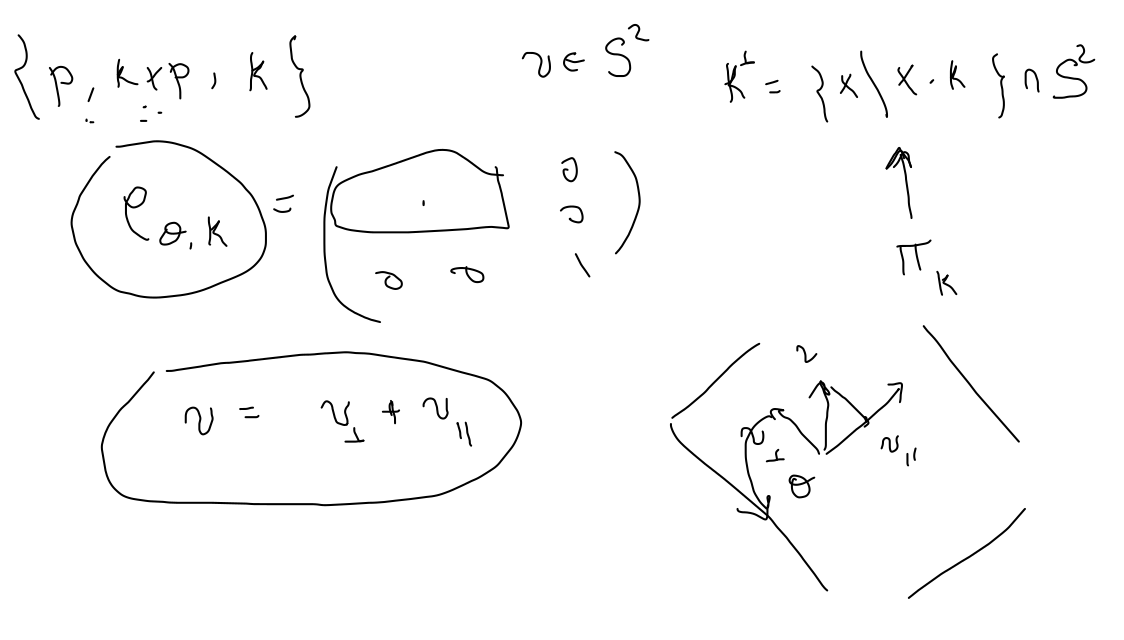 {p, k×p, k}   v ∈ S²   K^⊥ = {x \ x · k } ∩ S²
ρ_{θ,k} = ( . 0
0
0 0 1 )
π_k
v = v_⊥ + v_∥
v
v_⊥ v_∥
θ